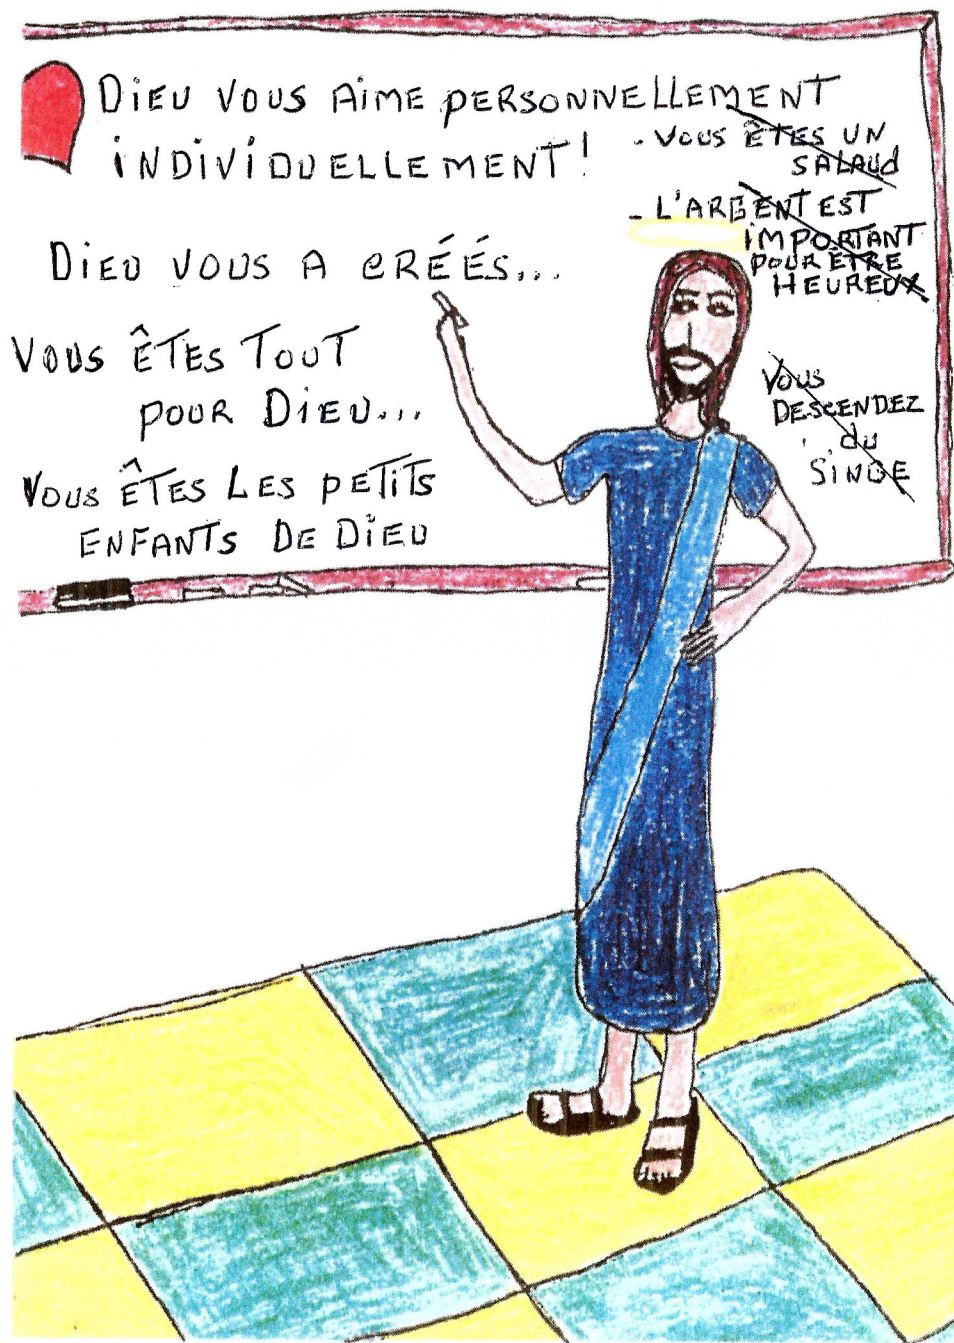 DIEU VOUS AIME PERSONNELLEMENT
INDIVIDUELLEMENT!
DIEU VOUS A CRÉÉS...
VOUS ÊTES TOUT
POUR DIEU...
VOUS ÊTES LES PETITS
ENFANTS DE DIEU
- VOUS ÊTES UN
SALAUD
- L'ARGENT EST
IMPORTANT
POUR ÊTRE
HEUREUX
VOUS
DESCENDEZ
du
SINGE